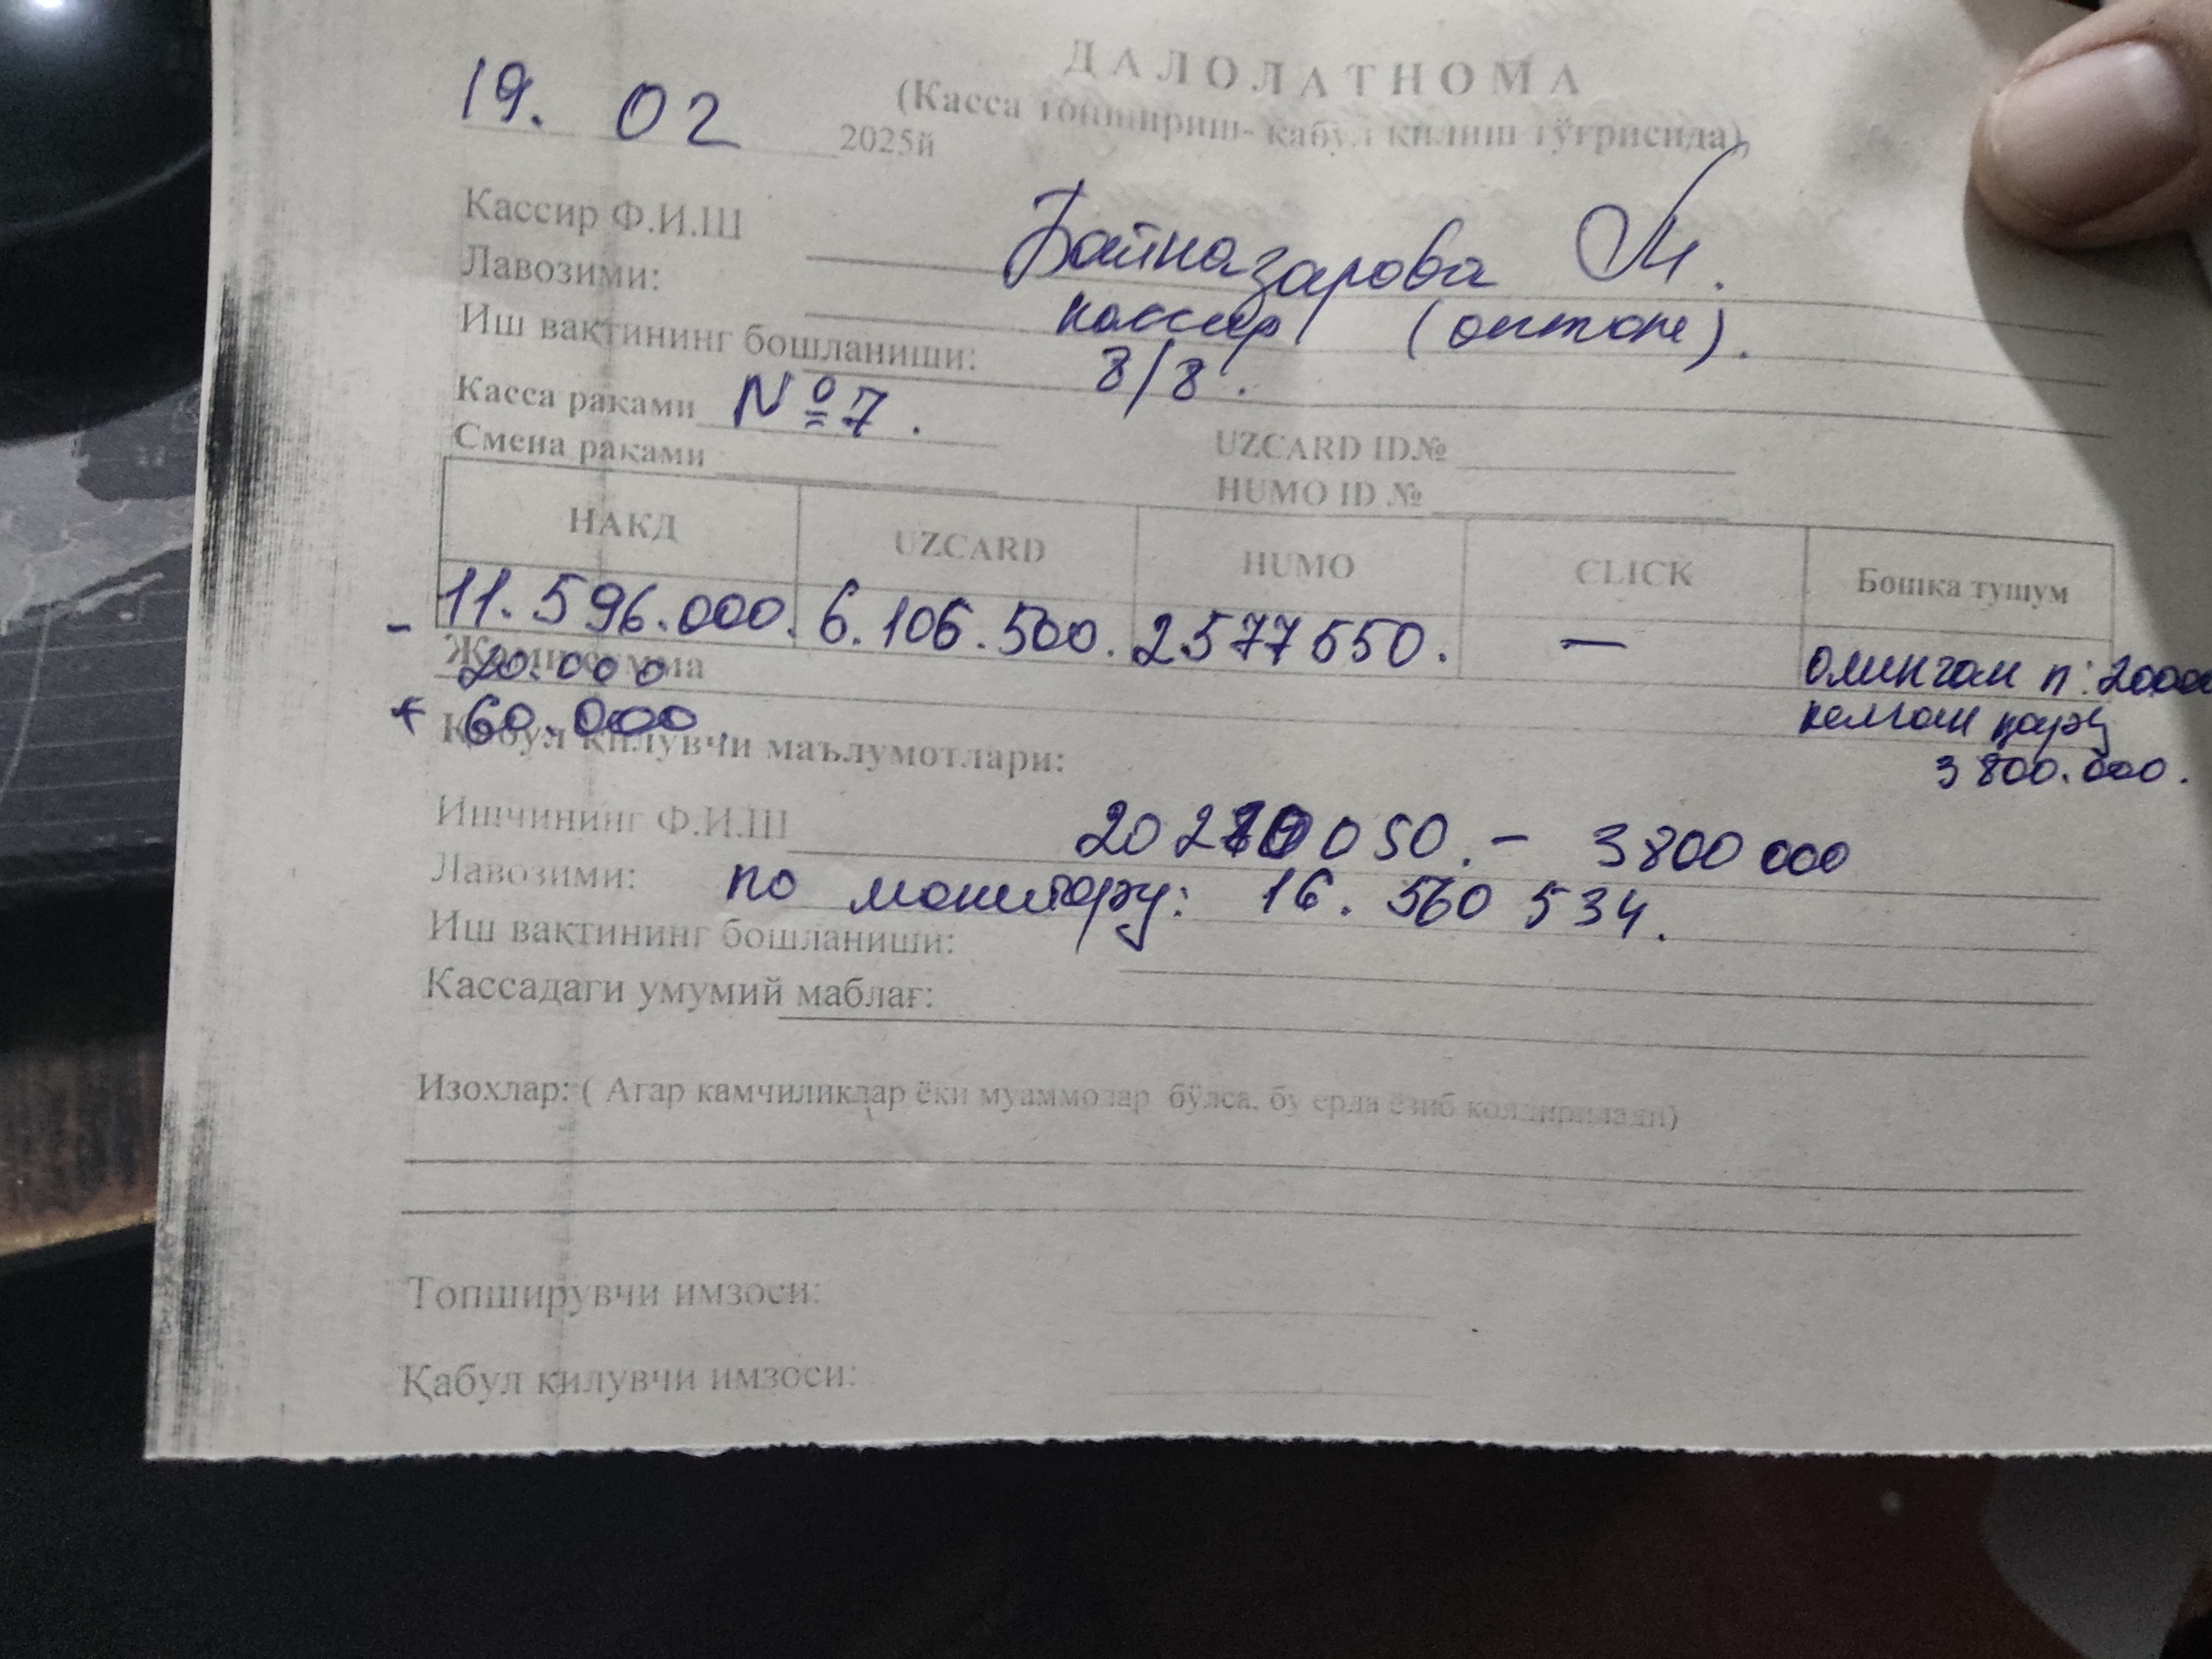 ДАЛОЛАТНОМА
(Касса топшириш- кабул килиш тўғрисида)
19. 02 2025й
Кассир Ф.И.Ш Байназарова М.
Лавозими: кассир (оптом).
Иш вақтининг бошланиши: 8/8.
Касса раками №7.
Смена раками UZCARD ID.№
HUMO ID №
НАКД UZCARD HUMO CLICK Бошка тушум
11.596.000. 6.106.500. 2577550. — олинган п:
- 20.000
Жами сумма келган
+ 60.000 3800.000.
Қабул қилувчи маълумотлари:
Ишчининг Ф.И.Ш 050. - 3800 000
Лавозими: по монитору: 16. 560 534.
Иш вақтининг бошланиши:
Кассадаги умумий маблағ:
Изохлар: ( Агар камчиликлар ёки муаммолар бўлса, бу ерда ёзиб колдирилади)
Топширувчи имзоси:
Қабул қилувчи имзоси: